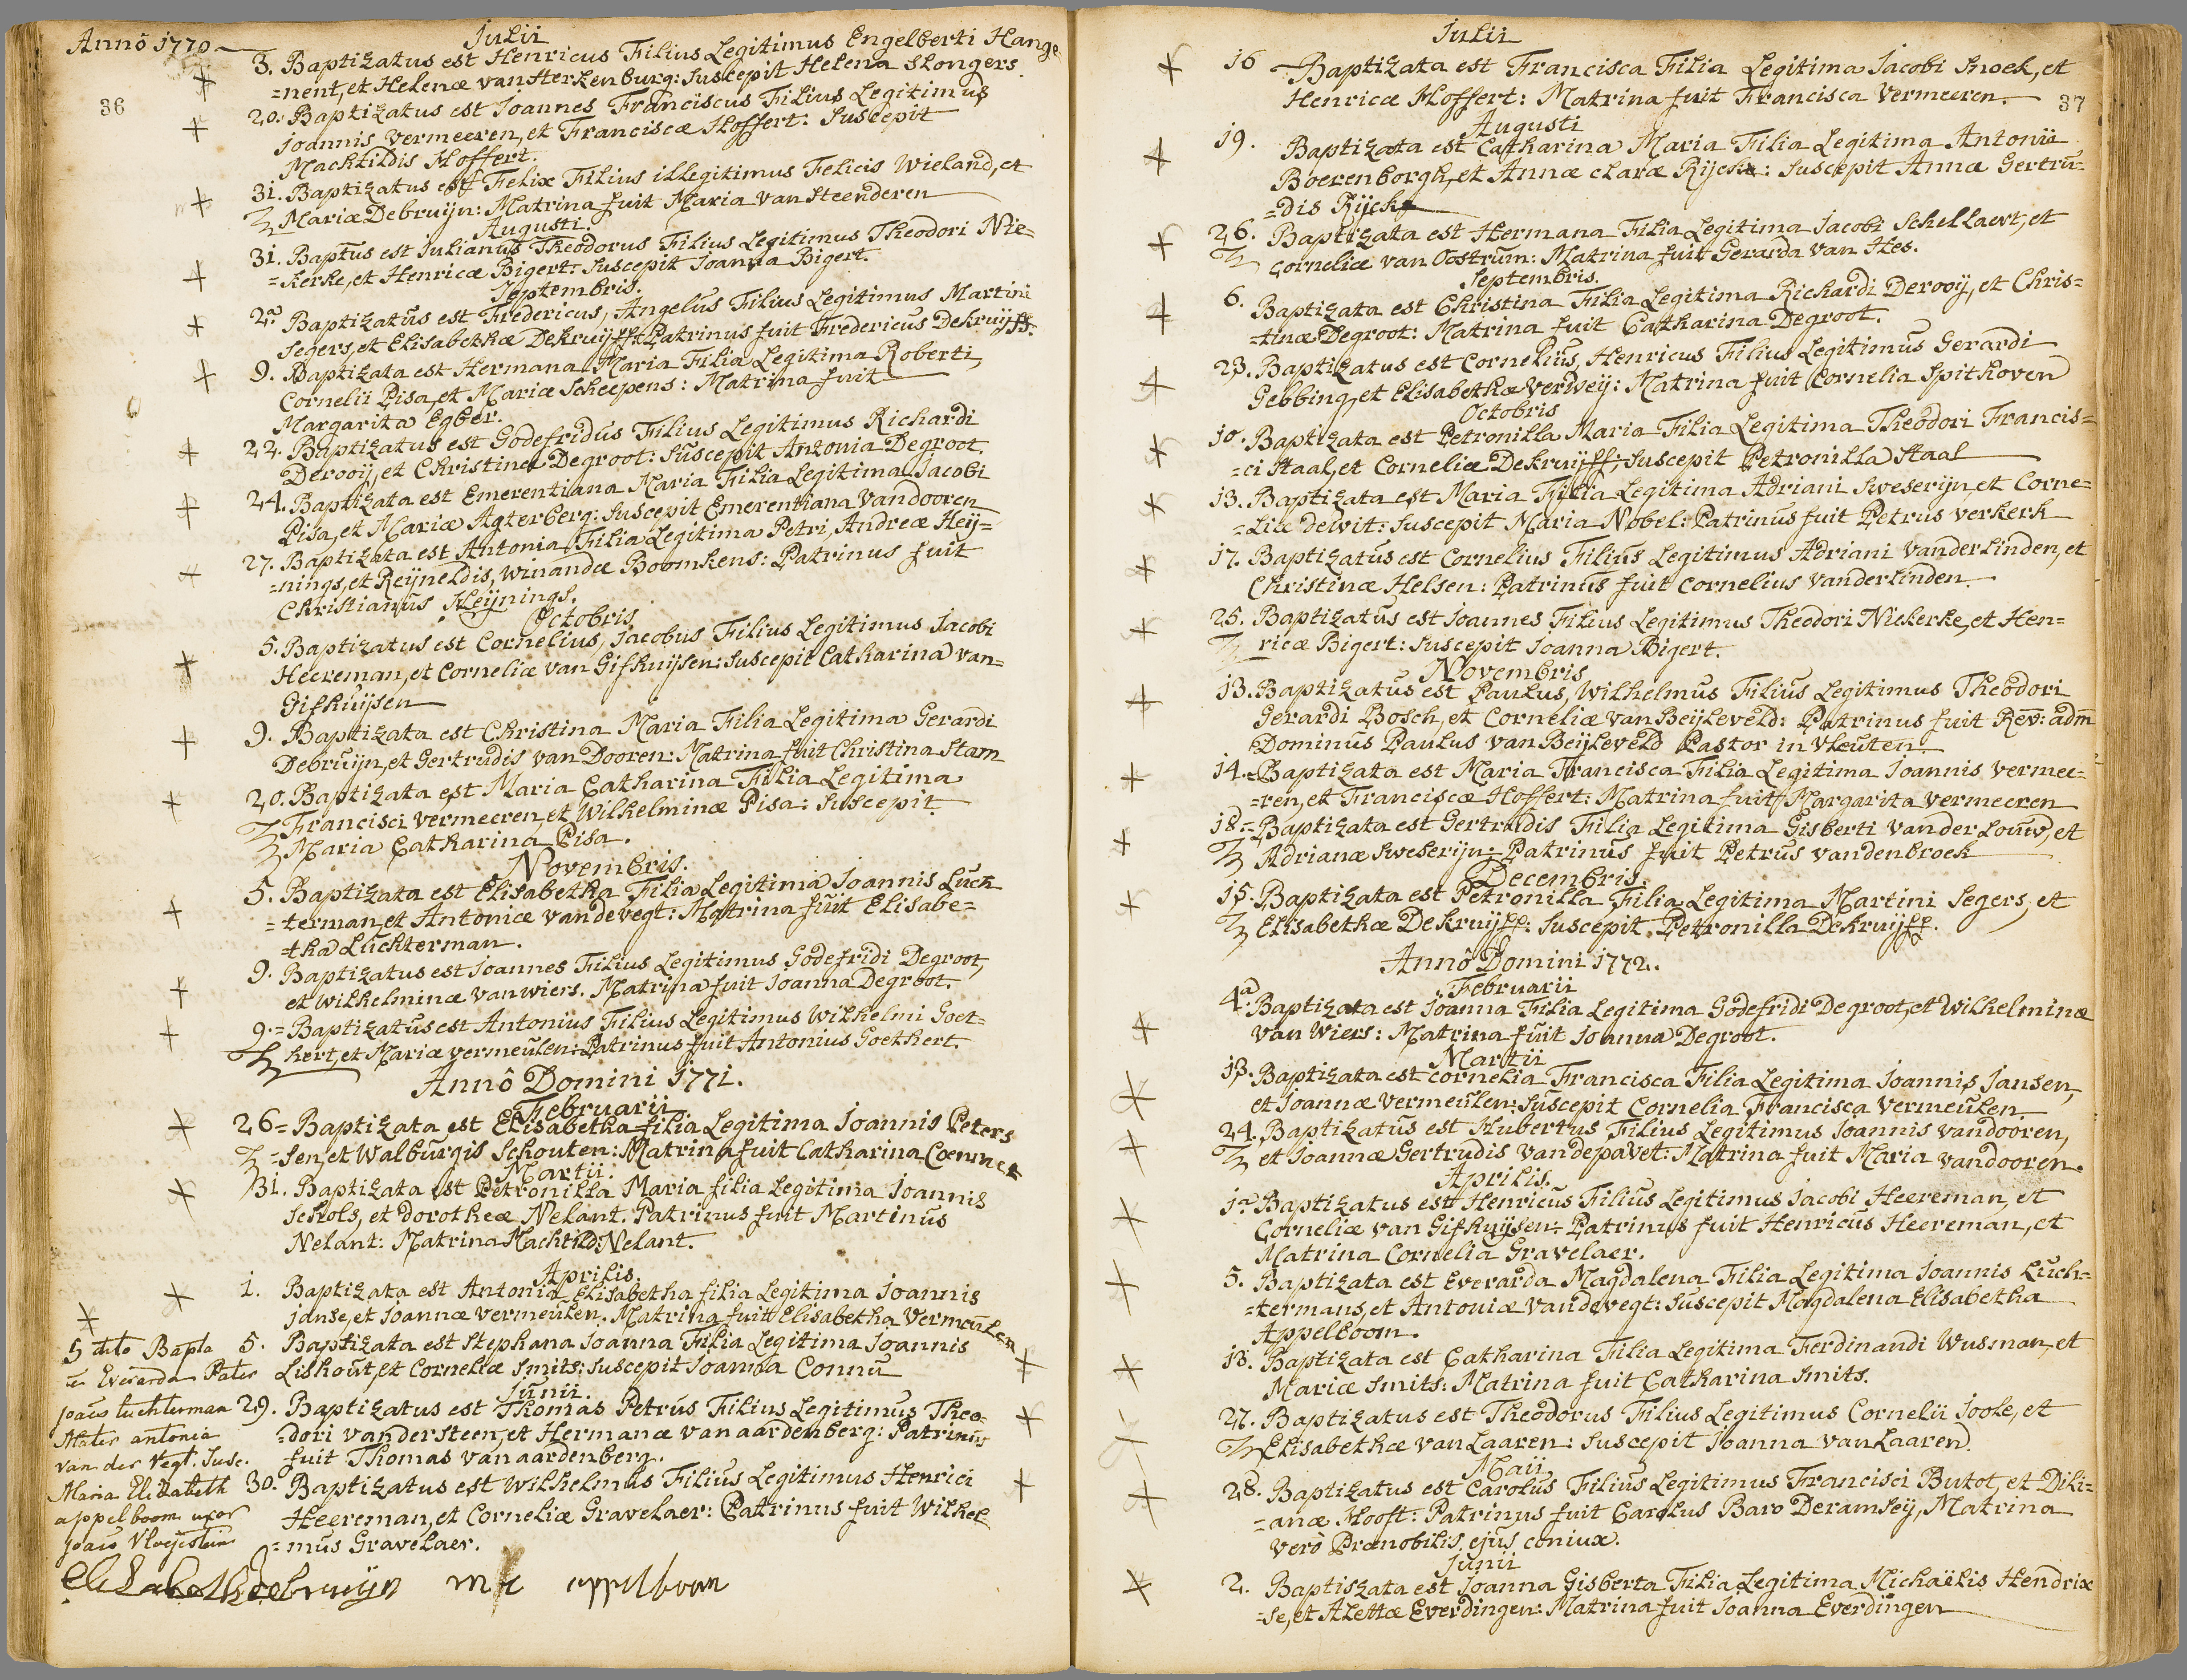 Anno 1770
Julii
3. Baptizatus est Henricus Filius Legitimus Engelberti Hange
=nent, et Helenæ van Sterkenburg: Suscepit Helena Slongers
36
20. Baptizatus est Joannes Franciscus Filius Legitimus
Joannis Vermeeren, et Franciscæ Hoffert: Suscepit
Machtildis Hoffert.
31. Baptizatus est Felix Filius illegitimus Felicis Wieland, et
Mariæ Debruijn: Matrina fuit Maria Van Steenderen
Augusti.
31. Baptus est Julianus Theodorus Filius Legitimus Theodori Nie=
=kerke, et Henricæ Bigert: Suscepit Joanna Bigert.
Septembris.
2a Baptizatus est Fredericus, Angelus Filius Legitimus Martini
Segers, et Elisabethæ Dekruijff: Patrinus fuit Fredericus Dekruijff.
9. Baptizata est Hermana Maria Filia Legitima Roberti,
Cornelii Pisa, et Mariæ Scheepens: Matrina fuit
Margarita Egber.
22. Baptizatus est Godefridus Filius Legitimus Richardi
Derooij, et Christinæ Degroot: Suscepit Antonia Degroot.
24. Baptizata est Emerentiana Maria Filia Legitima Jacobi
Pisa, et Mariæ Agterberg: Suscepit Emerentiana Vandooren
27. Baptizata est Antonia Filia Legitima Petri, Andreæ Heij=
=nings, et Reijneldis, Winandæ Boomkens: Patrinus fuit
Christianus Heijnings.
Octobris
5. Baptizatus est Cornelius, Jacobus Filius Legitimus Jacobi
Heereman, et Corneliæ van Gifhuijsen: Suscepit Catharina van=
Gifhuijsen
9. Baptizata est Christina Maria Filia Legitima Gerardi
Debruijn, et Gertrudis van Dooren: Matrina fuit Christina Stam
20. Baptizata est Maria Catharina Filia Legitima
Francisci Vermeeren, et Wilhelminæ Pisa: Suscepit
Maria Catharina Pisa.
Novembris.
5. Baptizata est Elisabetha Filia Legitima Joannis Luck
=terman, et Antoniæ vandevegt: Matrina fuit Elisabe=
=tha Luchterman.
9. Baptizatus est Joannes Filius Legitimus Godefridi Degroot,
et Wilhelminæ van wiers. Matrina fuit Joanna Degroot.
9.= Baptizatus est Antonius Filius Legitimus Wilhelmi Goet=
hert, et Mariæ vermeulen: Patrinus fuit Antonius Goethert.
Annô Domini 1771.
Februarii
26= Baptizata est Elisabetha filia Legitima Joannis Peters
=sen, et Walburgis Schouten: Matrina fuit Catharina Coenmer
Martii.
31. Baptizata est Petronilla Maria filia Legitima Joannis
Schols, et dorotheæ Nelant. Patrinus fuit Martinus
Nelant: Matrina Machtild: Nelant.
Aprilis.
1. Baptizata est Antonia Elisabetha filia Legitima Joannis
Janse, et Joannæ vermeulen. Matrina fuit Elisabetha Vermeulen
5. Baptizata est Stephana Joanna Filia Legitima Joannis
Lishout, et Corneliæ Smits: Suscepit Joanna Connu
Junii.
29. Baptizatus est Thomas Petrus Filius Legitimus Theo=
=dori vandersteen, et Hermanæ van aardenberg: Patrinus
fuit Thomas van aardenberg.
30. Baptizatus est Wilhelmus Filius Legitimus Henrici
Heereman, et Corneliæ Gravelaer: Patrinus fuit Wilhel=
=mus Gravelaer.
5 dito Bapta
Everarda Pater
Joäis Luchterman
Mater antonia
van der Vegt. Susc.
Maria Elizabeth
appelboom uxor
Joäis
Elisabeth debruijn M E appelboom
Julii
16 Baptizata est Francisca Filia Legitima Jacobi Snoek, et
Henricæ Hoffert: Matrina fuit Francisca Vermeeren.
37
Augusti
19. Baptizata est Catharina Maria Filia Legitima Antonii
Boerenborgh, et Annæ claræ Rijcks: Suscepit Anna Gertru=
=dis Rijcks
26. Baptizata est Hermana Filia Legitima Jacobi Schellaert, et
Corneliæ van Oostrum: Matrina fuit Gerarda van Hes.
Septembris.
6. Baptizata est Christina Filia Legitima Richardi Derooij, et Chris=
=tinæ Degroot: Matrina fuit Catharina Degroot.
23. Baptizatus est Cornelius, Henricus Filius Legitimus Gerardi
Gebbing, et Elisabethæ Verweij: Matrina fuit Cornelia Spithoven
Octobris
10. Baptizata est Petronilla Maria Filia Legitima Theodori Francis=
=ci Staal, et Corneliæ Dekruijff; Suscepit Petronilla Staal
13. Baptizata est Maria Filia Legitima Adriani Sweserijn, et Corne=
=liæ dewit: Suscepit Maria Nobel: Patrinus fuit Petrus verkerk
17. Baptizatus est Cornelius Filius Legitimus Adriani Vanderlinden, et
Christinæ Helsen: Patrinus fuit Cornelius Vanderlinden.
25. Baptizatus est Joannes Filius Legitimus Theodori Niekerke, et Hen=
ricæ Bigert: Suscepit Joanna Bigert.
Novembris
13. Baptizatus est Paulus, Wilhelmus Filius Legitimus Theodori
Gerardi Bosch, et Corneliæ van Beijleveld: Patrinus fuit Rev: adm
Dominus Paulus van Beijleveld Pastor in Vleuten.
14.= Baptizata est Maria Francisca Filia Legitima Joannis Vermee=
=ren, et Franciscæ Hoffert: Matrina fuit Margarita Vermeeren
18= Baptizata est Gertrudis Filia Legitima Gisberti van der Louw, et
Adrianæ Sweserijn: Patrinus fuit Petrus vandenbroek
Decembris.
15. Baptizata est Petronilla Filia Legitima Martini Segers, et
Elisabethæ Dekruijff: Suscepit Petronilla Dekruijff.
Annô Domini 1772.
Februarii
4a. Baptizata est Joanna Filia Legitima Godefridi Degroot, et Wilhelminæ
Van Wiers: Matrina fuit Joanna Degroot.
Martii
13. Baptizata est cornelia Francisca Filia Legitima Joannis Jansen,
et Joannæ Vermeulen: Suscepit Cornelia Francisca Vermeulen.
24. Baptizatus est Hubertus Filius Legitimus Joannis vandooren,
et Joannæ Gertrudis vandepavet: Matrina fuit Maria vandooren.
Aprilis.
1a Baptizatus est Henricus Filius Legitimus Jacobi Heereman, et
Corneliæ van Gifhuijsen: Patrinus fuit Henricus Heereman, et
Matrina Cornelia Gravelaer.
5. Baptizata est Everarda Magdalena Filia Legitima Joannis Luch=
=termans, et Antoniæ vandevegt: Suscepit Magdalena Elisabetha
Appelboom.
18. Baptizata est Catharina Filia Legitima Ferdinandi Wusman, et
Mariæ Smits: Matrina fuit Catharina Smits.
27. Baptizatus est Theodorus Filius Legitimus Cornelii Joole, et
Elisabethæ van Laaren: Suscepit Joanna van Laaren.
Maii
28. Baptizatus est Carolus Filius Legitimus Francisci Butot, et Dili=
=anæ Hooft: Patrinus fuit Carolus Baro Deramseij, Matrina
verò Prænobilis ejus coniux.
Junii
2. Baptiszata est Joanna Gisberta Filia Legitima Michaëlis Hendrix
=se, et Alettæ Everdingen: Matrina fuit Joanna Everdingen